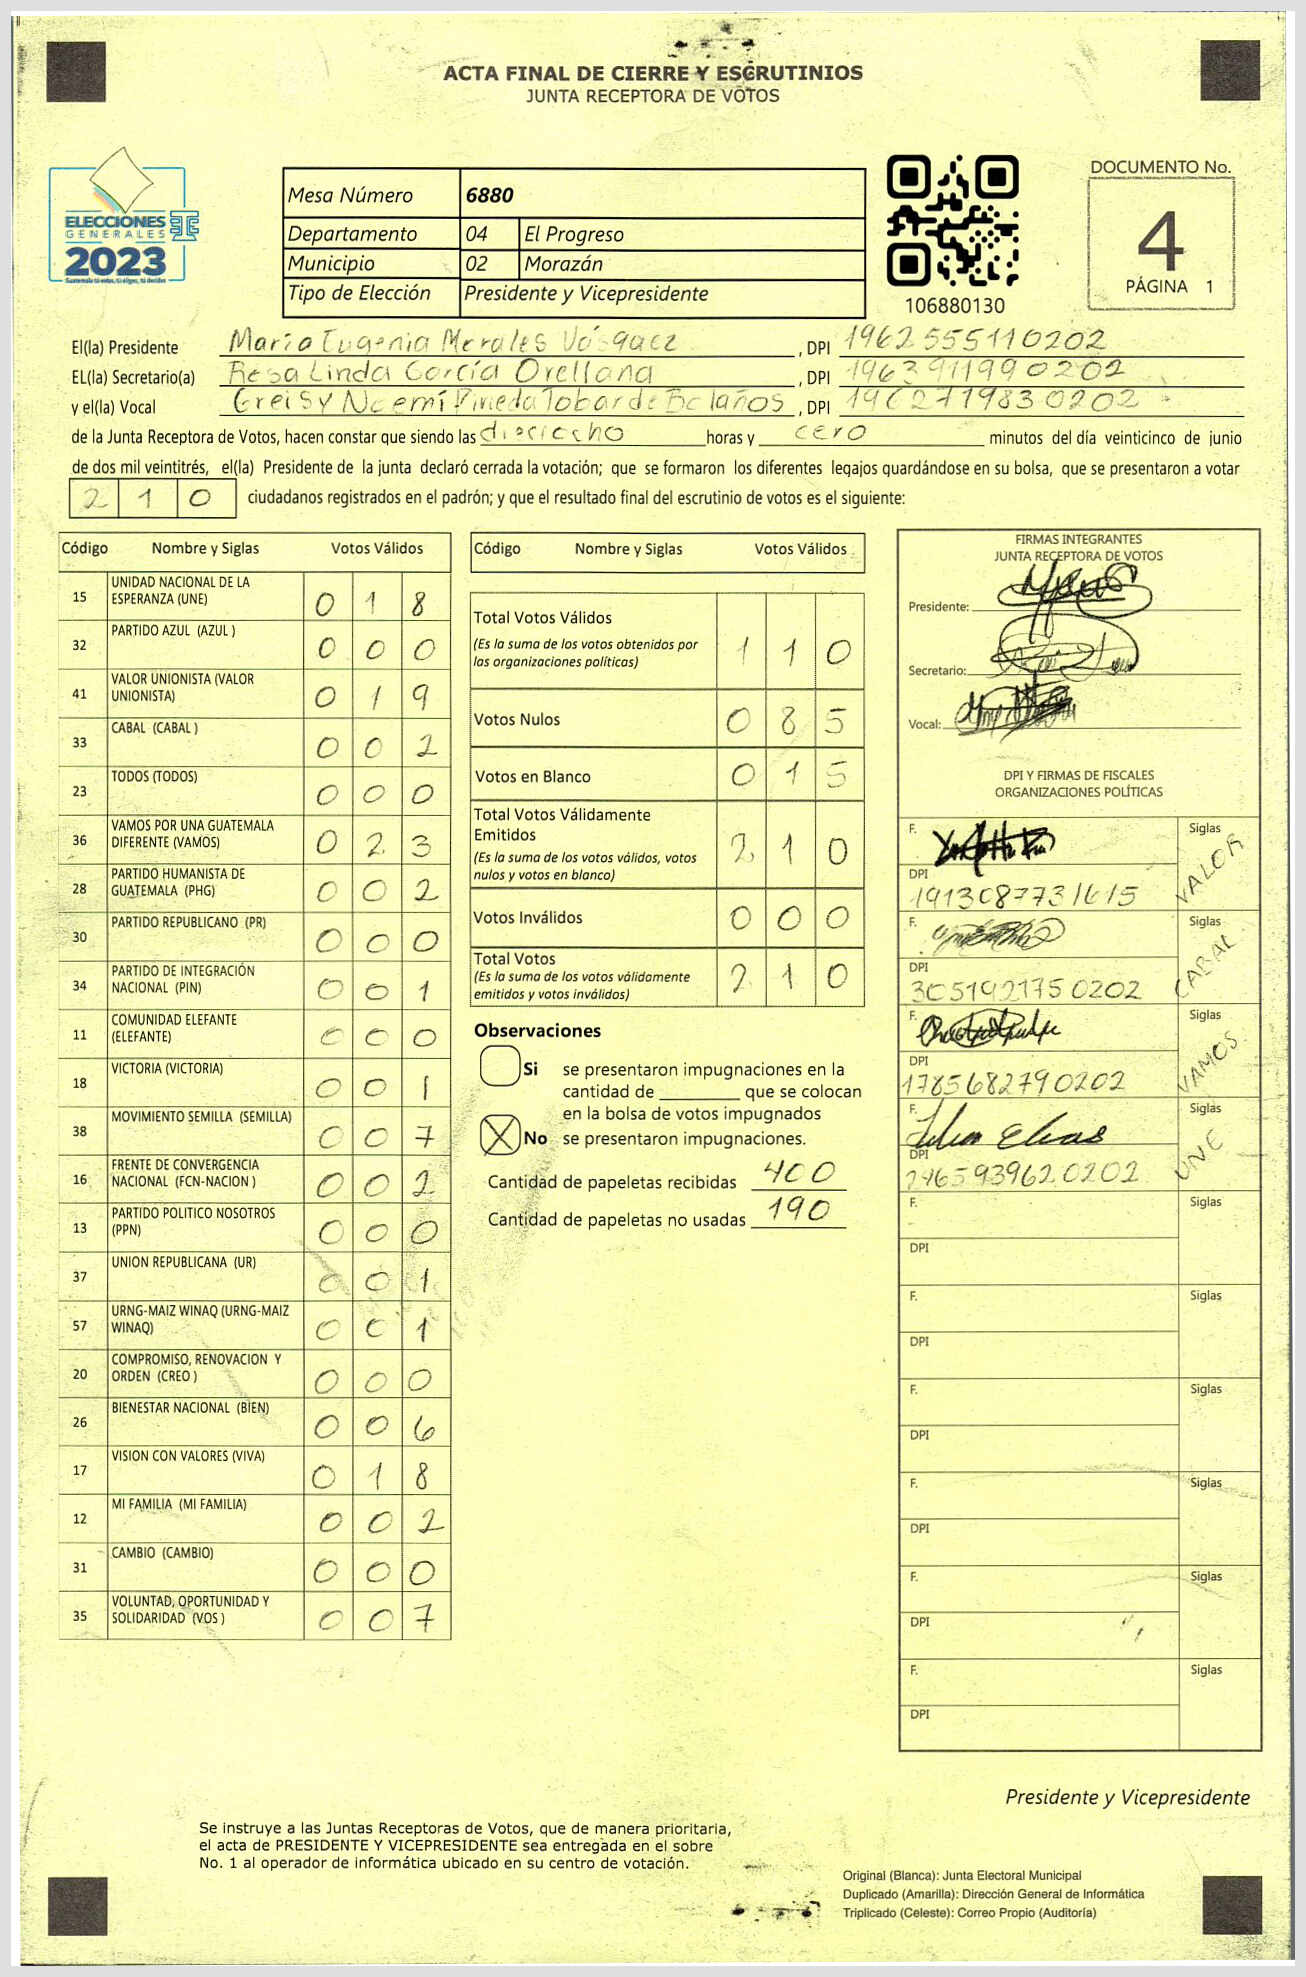 ACTA FINAL DE CIERRE Y ESCRUTINIOS
JUNTA RECEPTORA DE VOTOS
ELECCIONES
GENERALES
2023
Mesa Número 6880
Departamento 04 El Progreso
Municipio 02 Morazán
Tipo de Elección Presidente y Vicepresidente
106880130
DOCUMENTO No.
4
PÁGINA 1
El(la) Presidente María Eugenia Morales Vásquez , DPI 1962555110202
EL(la) Secretario(a) Rosa Linda García Orellana , DPI 1963911990202
y el(la) Vocal Greisy Noemí Pineda Tobar de Bolaños , DPI 1962719830202
de la Junta Receptora de Votos, hacen constar que siendo las dieciocho horas y cero minutos del día veinticinco de junio
de dos mil veintitrés, el(la) Presidente de la junta declaró cerrada la votación; que se formaron los diferentes legajos guardándose en su bolsa, que se presentaron a votar
210 ciudadanos registrados en el padrón; y que el resultado final del escrutinio de votos es el siguiente:
Código Nombre y Siglas Votos Válidos
15 UNIDAD NACIONAL DE LA ESPERANZA (UNE) 018
32 PARTIDO AZUL (AZUL ) 000
41 VALOR UNIONISTA (VALOR UNIONISTA) 019
33 CABAL (CABAL ) 002
23 TODOS (TODOS) 000
36 VAMOS POR UNA GUATEMALA DIFERENTE (VAMOS) 023
28 PARTIDO HUMANISTA DE GUATEMALA (PHG) 002
30 PARTIDO REPUBLICANO (PR) 000
34 PARTIDO DE INTEGRACIÓN NACIONAL (PIN) 001
11 COMUNIDAD ELEFANTE (ELEFANTE) 000
18 VICTORIA (VICTORIA) 001
38 MOVIMIENTO SEMILLA (SEMILLA) 007
16 FRENTE DE CONVERGENCIA NACIONAL (FCN-NACION ) 002
13 PARTIDO POLITICO NOSOTROS (PPN) 000
37 UNION REPUBLICANA (UR) 001
57 URNG-MAIZ WINAQ (URNG-MAIZ WINAQ) 001
20 COMPROMISO, RENOVACION Y ORDEN (CREO ) 000
26 BIENESTAR NACIONAL (BIEN) 006
17 VISION CON VALORES (VIVA) 018
12 MI FAMILIA (MI FAMILIA) 002
31 CAMBIO (CAMBIO) 000
35 VOLUNTAD, OPORTUNIDAD Y SOLIDARIDAD (VOS ) 007
Código Nombre y Siglas Votos Válidos
Total Votos Válidos 110
(Es la suma de los votos obtenidos por las organizaciones políticas)
Votos Nulos 085
Votos en Blanco 015
Total Votos Válidamente Emitidos 210
(Es la suma de los votos válidos, votos nulos y votos en blanco)
Votos Inválidos 000
Total Votos 210
(Es la suma de los votos válidamente emitidos y votos inválidos)
Observaciones
Si se presentaron impugnaciones en la
cantidad de ________ que se colocan
en la bolsa de votos impugnados
X No se presentaron impugnaciones.
Cantidad de papeletas recibidas 400
Cantidad de papeletas no usadas 190
FIRMAS INTEGRANTES
JUNTA RECEPTORA DE VOTOS
Presidente:
Secretario:
Vocal:
DPI Y FIRMAS DE FISCALES
ORGANIZACIONES POLÍTICAS
F. Siglas VALOR
DPI 1913087731615
F. Siglas CABAL
DPI 3051921750202
F. Siglas VAMOS
DPI 1785682790202
F. Siglas UNE
DPI
F. Siglas
DPI
F. Siglas
DPI
F. Siglas
DPI
F. Siglas
DPI
F. Siglas
DPI
F. Siglas
DPI
Presidente y Vicepresidente
Se instruye a las Juntas Receptoras de Votos, que de manera prioritaria,
el acta de PRESIDENTE Y VICEPRESIDENTE sea entregada en el sobre
No. 1 al operador de informática ubicado en su centro de votación.
Original (Blanca): Junta Electoral Municipal
Duplicado (Amarilla): Dirección General de Informática
Triplicado (Celeste): Correo Propio (Auditoría)